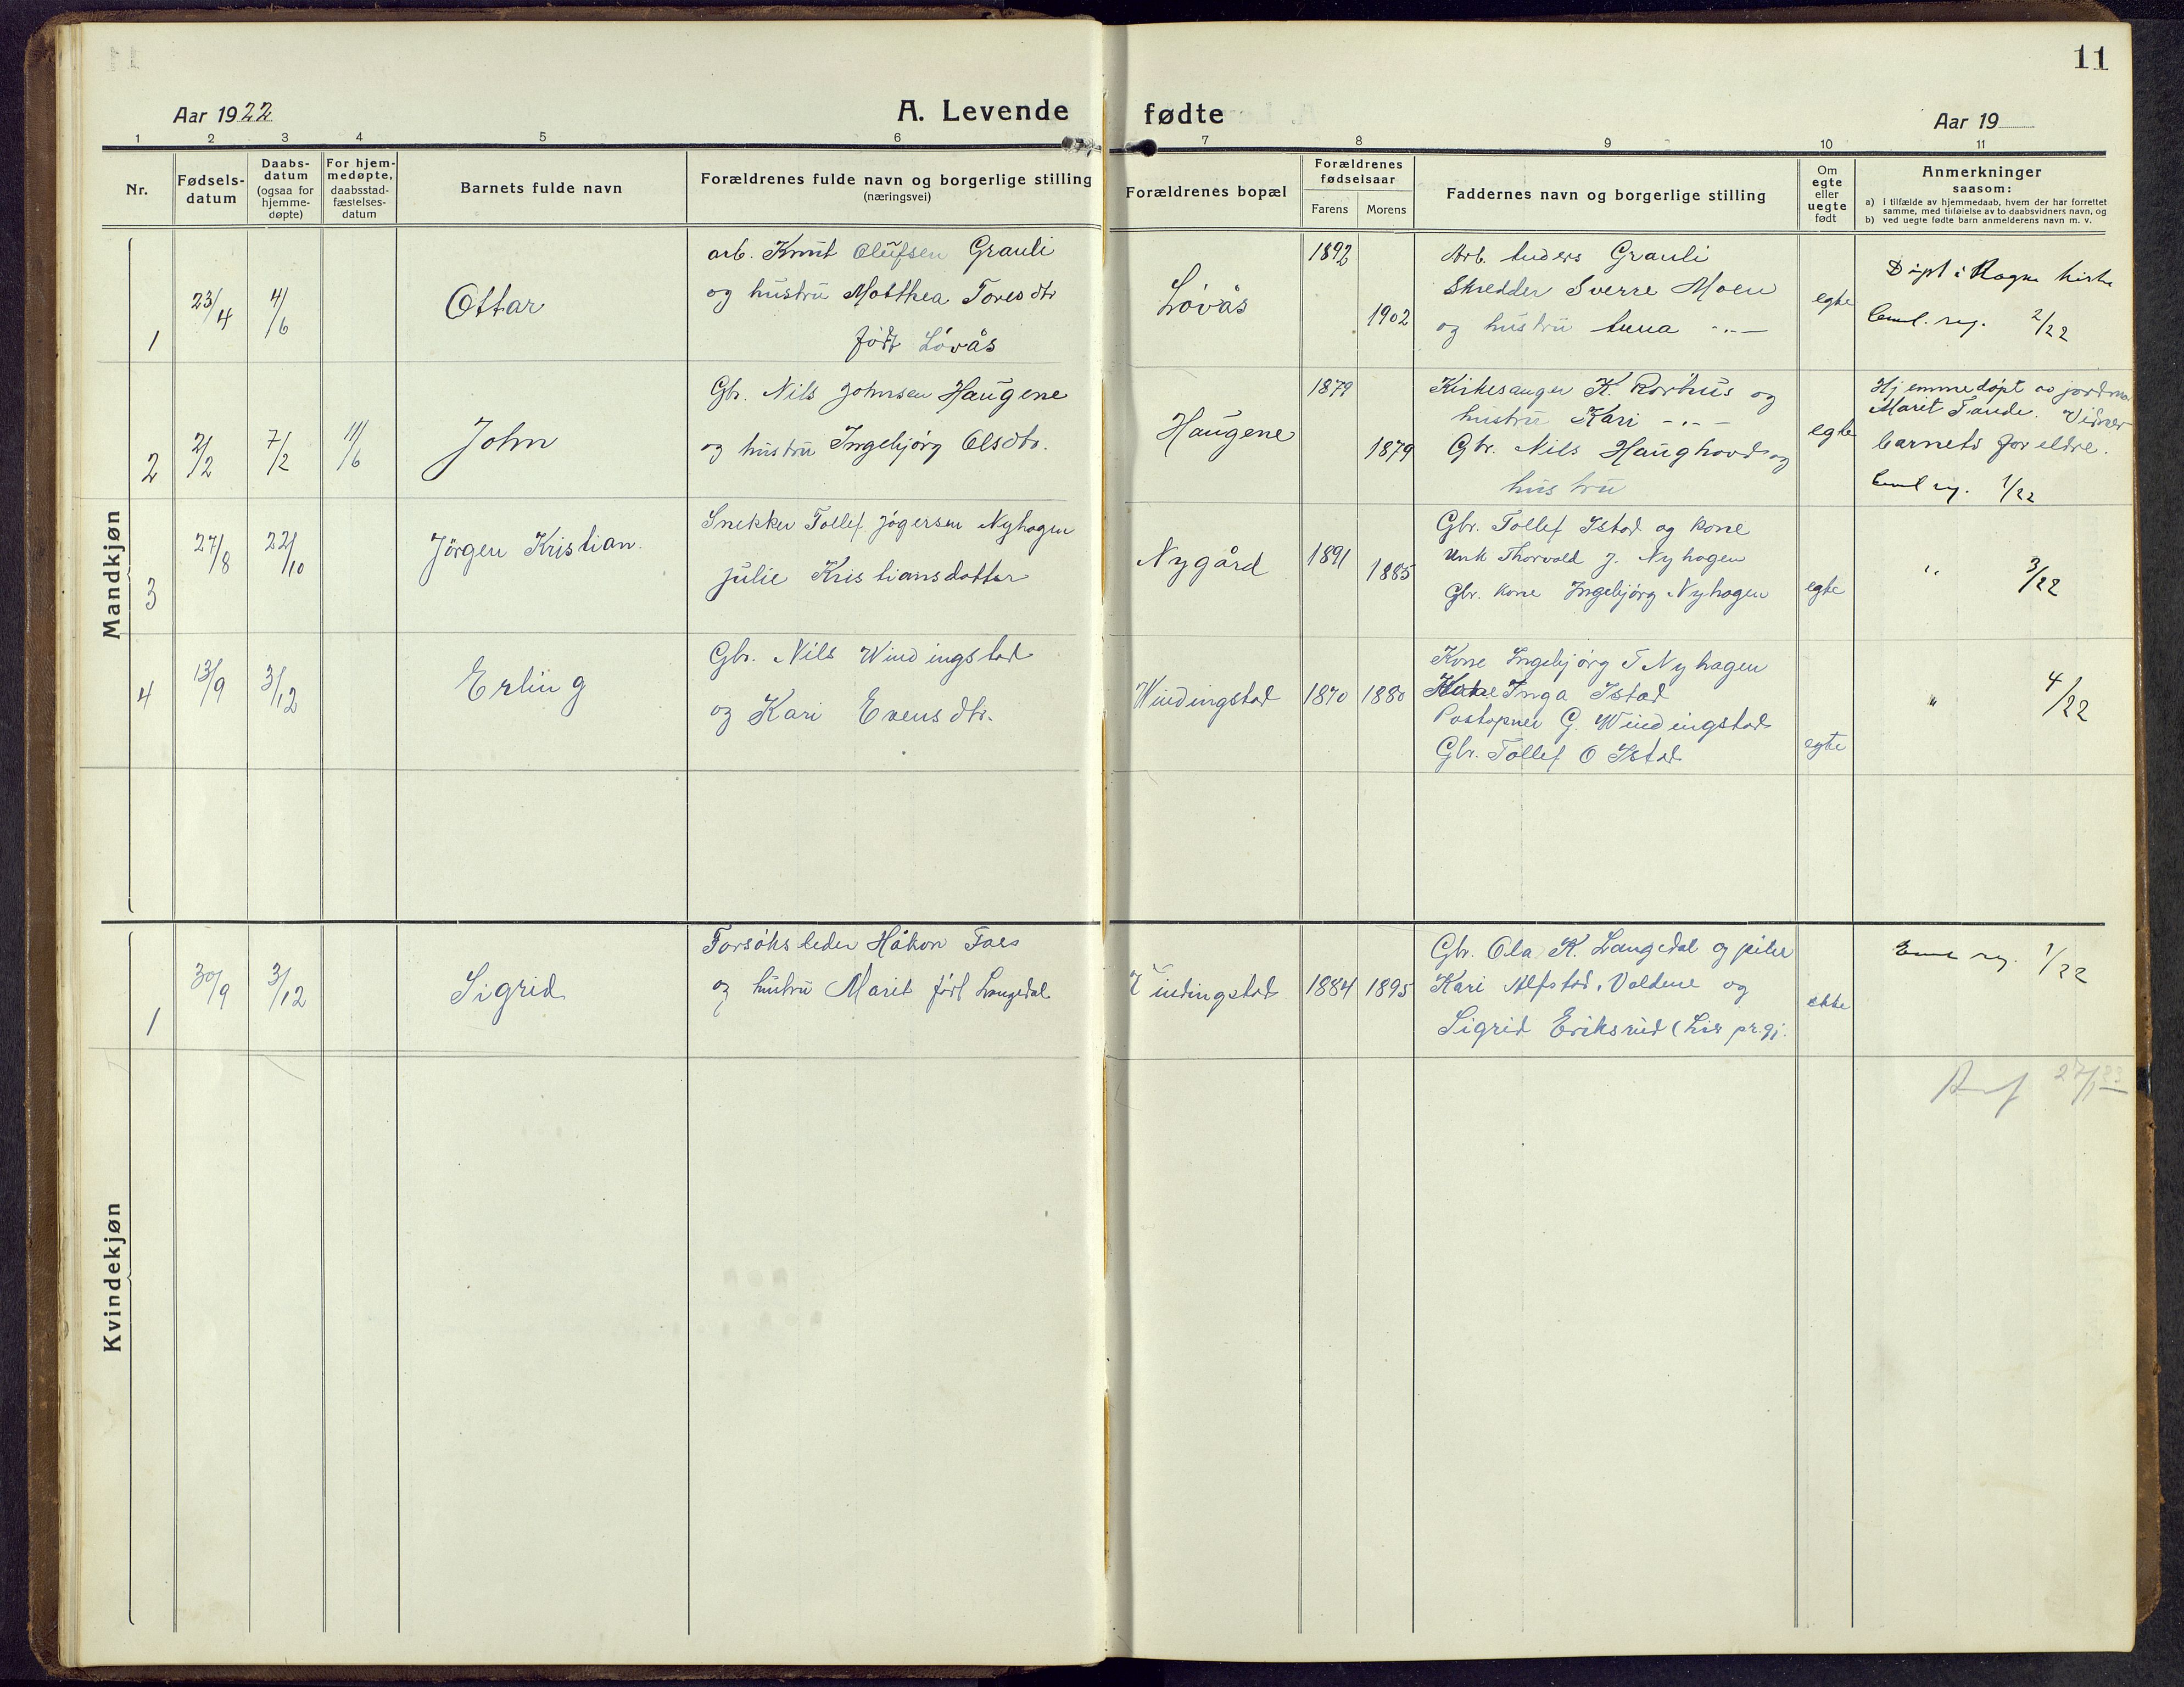 11
Aar 1922
A. Levende fødte
Aar 19
1 2 3 4 5 6 7 8 9 10 11
Nr.
Fødselsdatum
Daabsdatum (ogsaa for hjemmedøpte)
For hjemmedøpte, daabsstadfæstelsesdatum
Barnets fulde navn
Forældrenes fulde navn og borgerlige stilling
(næringsvei)
Forældrenes bopæl
Forældrenes fødselsaar
Farens Morens
Faddernes navn og borgerlige stilling
Om egte eller uegte født
Anmerkninger
saasom:
a) i tilfælde av hjemmedaab, hvem der har forrettet samme, med tilføielse av to daabsvidners navn, og
b) ved uegte fødte barn anmelderens navn m. v.
Mandkjøn
1
23/4
4/6
Ottar
arb. Knut Olufsen Grauli
og hustru Matthea Toresdtr
født Lövås
Lövås
1892
1902
Arb. Anders Grauli
Skredder Sverre Moen
og hustru Anna -"-
egte
Döpt i Rogne kirke
2/22
2
2/2
7/2
11/6
John
Gbr. Nils Johnsen Haugene
og hustru Ingebjørg Olsdtr.
Haugene
1879
1879
Kirkesanger K. Rørhus og
hustru Kari -"-
Gbr. Nils Haughovd og
hustru
egte
Hjemmedøpt av jordmor
Marit Tande. Vidner
barnets foreldre.
1/22
3
27/8
22/10
Jörgen Kristian.
Snekker Tollef Jögersen Nyhagen
Julie Kristiansdatter
Nygård
1891
1885
Gbr. Tollef Istad og kone
Unk Thorvald J. Nyhagen
Gbr. kone Ingebjørg Nyhagen
egte
" 3/22
4
13/9
3/12
Erling
Gbr. Nils Windingstad
og Kari Evensdtr.
Windingstad
1870
1880
Kone Ingebjørg T Nyhagen
Inga Istad
Postopner G. Windingstad
Gbr. Tollef O Istad
egte
" 4/22
Kvindekjøn
1
30/9
3/12
Sigrid
Forsöksleder Håkon Foss
og hustru Marit född Langedal
Vindingstad
1884
1895
Gbr. Ola K. Langedal og piker
Kari Alfstad, Valdene og
Sigrid Eriksrud (Lier pr. gj.
ekte
1/22
27/1 23